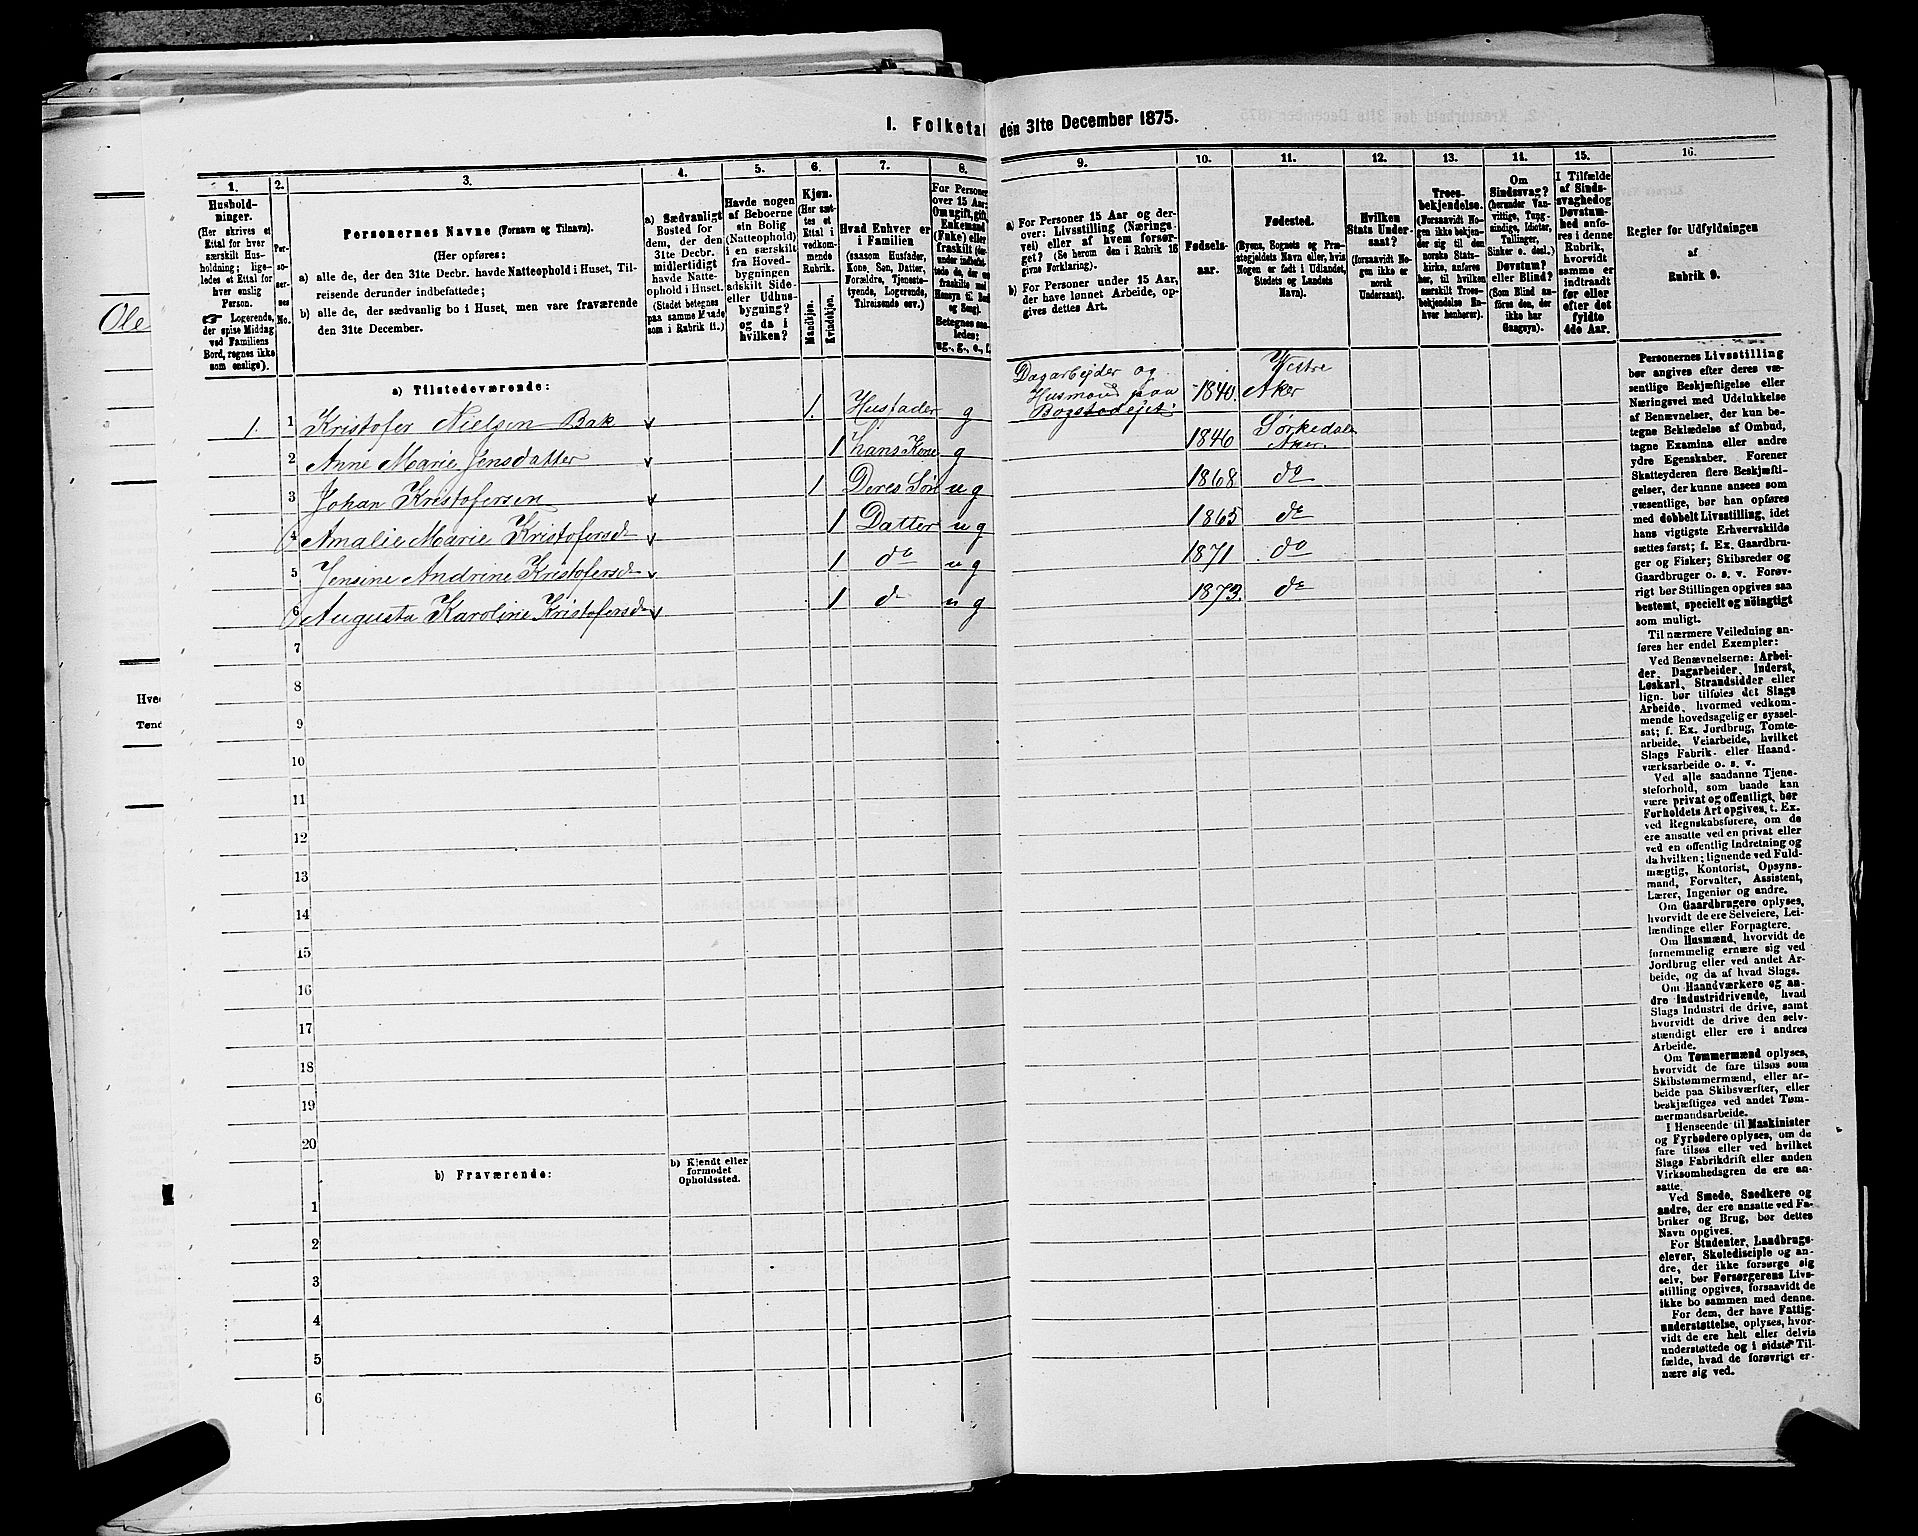 1. Folketal den 31te December 1875.
1.
2.
3.
4.
5.
6.
7.
8.
9.
10.
11.
12.
13.
14.
15.
16.
Husholdninger.
(Her skrives et
Ettal for hver
særskilt Husholdning;
ligeledes
et Ettal for
hver enslig
Person.
☞ Logerende,
der spise Middag
ved Familiens
Bord, regnes ikke
som enslige).
Personernes
No.
Personernes Navne (Fornavn og Tilnavn).
(Her opføres:
a) alle de, der den 31te Decbr. havde Natteophold i Huset, Tilreisende
derunder indbefattede;
b) alle de, der sædvanlig bo i Huset, men vare fraværende
den 31te December.
a) Sædvanligt
Bosted for
dem, der den
31te Decbr.
midlertidigt
havde Natteophold
i Huset.
(Stedet betegnes
paa samme Maade
som i Rubrik 11.)
Havde nogen
af Beboerne
sin Bolig
(Natteophold)
i en særskilt
fra Hovedbygningen
adskilt Side-
eller Udhusbygning?
og da i
hvilken?
Kjøn.
(Her sættes
et
Ettal i
vedkommende
Rubrik.
Mandkjøn.
Kvindekjøn.
Hvad Enhver er
i Familien
(saasom Husfader,
Kone, Søn, Datter,
Forældre, Tjenestetyende,
Logerende,
Tilreisende osv.)
For Personer
over 15 Aar:
Om ugift, gift,
Enkemand
(Enke) eller
fraskilt
Betegnes saaledes:
ug., g., e., f.
a) For Personer 15 Aar og derover:
Livsstilling (Næringsvei)
eller af hvem forsørget?
(Se herom den i Rubrik 16
givne Forklaring).
b) For Personer under 15 Aar,
der have lønnet Arbeide, opgives
dettes Art.
Fødselsaar.
Fødested.
(Byens, Sognets og Præstegjeldets
Navn eller, hvis
Nogen er født i Udlandet,
Stedets og Landets
Navn).
Hvilken
Stats Undersaat?
(forsaavidt Nogen
ikke er
norsk
Undersaat).
Troesbekjendelse.
(Forsaavidt Nogen
ikke bekjender
sig til den
norske Statskirke,
anføres
her, til hvilken
særskilt Troesbekjendelse
Enhver
henhører).
Om
Sindssvag?
(herunder Vanvittige,
Tungsindige,
Idioter,
Tullinger,
Sinker o. desl.).
Døvstum?
eller Blind?
(Som Blind anføres
den, der
ikke har
Gangsyn).
I Tilfælde
af Sindssvaghed
og
Døvstumhed
anføres
i denne
Rubrik,
hvorvidt
samme er
indtraadt
før eller
efter det
fyldte
4de Aar.
Regler for Udfyldningen
af
Rubrik 9.
a) Tilstedeværende:
1. 1 Kristofer Nielsen Bak v 1. Husfader g Dagarbejder og Husmand paa Bogstadejet; 1840. Vestre Aker
2 Anne Marie Jensdatter v 1 hans Kone g 1846 Sørkedalen Aker.
3 Johan Kristofersen v 1 Deres Søn ug 1868 do
4 Amalie Marie Kristofersd v 1 Datter ug 1865 do
5 Jensine Andrine Kristofersd v 1 do ug 1871 do
6 Augusta Karoline Kristofersd v 1 do ug 1873. do
7
8
9
10
11
12
13
14
15
16
17
18
19
20
b) Fraværende:
b) Kjendt eller
formodet
Opholdssted.
1
2
3
4
5
6
Personernes Livsstilling
bør angives efter deres væsentlige
Beskjæftigelse eller
Næringsvei med Udelukkelse
af Benævnelser, der kun betegne
Beklædelse af Ombud,
tagne Examina eller andre
ydre Egenskaber. Forener
Skatteyderen flere Beskjæftigelser,
der kunne ansees som
væsentlige, bør han opføres
med dobbelt Livsstilling, idet
hans vigtigste Erhvervskilde
sættes først; f. Ex. Gaardbruger
og Fisker; Skibsreder og
Gaardbruger o. s. v. Forøvrigt
bør Stillingen opgives saa
bestemt, specielt og nøiagtigt
som muligt.
Til nærmere Veiledning anføres
her endel Exempler:
Ved Benævnelserne: Arbeider,
Dagarbeider, Inderst,
Løskarl, Strandsidder eller
lign. bør tilføies det Slags
Arbeide, hvormed vedkommende
hovedsagelig er sysselsat;
f. Ex. Jordbrug, Tomtearbeide,
Veiarbeide, hvilket
Slags Fabrik- eller Haandværksarbeide
o. s. v.
Ved alle saadanne Tjenesteforhold,
som baade kan
være privat og offentligt, bør
Forholdets Art opgives, t. Ex.
ved Regnskabsførere, om de
ere ansatte ved en privat eller
ved en offentlig Indretning og
da hvilken; lignende ved Fuldmægtig,
Kontorist, Opsynsmand,
Forvalter, Assistent,
Lærer, Ingeniør og andre.
Om Gaardbrugere oplyses,
hvorvidt de ere Selveiere, Leilændinge
eller Forpagtere.
Om Husmænd, hvorvidt de
fornemmelig ernære sig ved
Jordbrug eller ved andet Arbeide,
og da af hvad Slags.
Om Haandværkere og andre
Industridrivende, hvad
Slags Industri de drive, samt
hvorvidt de drive den selvstændigt
eller ere i andres
Arbeide.
Om Tømmermænd oplyses,
hvorvidt de fare tilsøs som
Skibstømmermænd, eller arbeide
paa Skibsværfter, eller
beskjæftiges ved andet Tømmermandsarbeide.
I Henseende til Maskinister
og Fyrbødere oplyses, om de
fare tilsøs eller ved hvilket
Slags Fabrikdrift eller anden
Virksomhedsgren de ere ansatte.
Ved Smede, Snedkere og
andre, der ere ansatte ved Fabriker
og Brug, bør dettes
Navn opgives.
For Studenter, Landbrugselever,
Skoledisciple og andre,
der ikke forsørge sig
selv, bør Forsørgerens Livsstilling
opgives, forsaavidt de
ikke bo sammen med denne.
For dem, der have Fattigunderstøttelse,
oplyses, hvorvidt
de ere helt eller delvis
understøttede og i sidste Tilfælde,
hvad de forøvrigt ernære
sig ved.
Ole